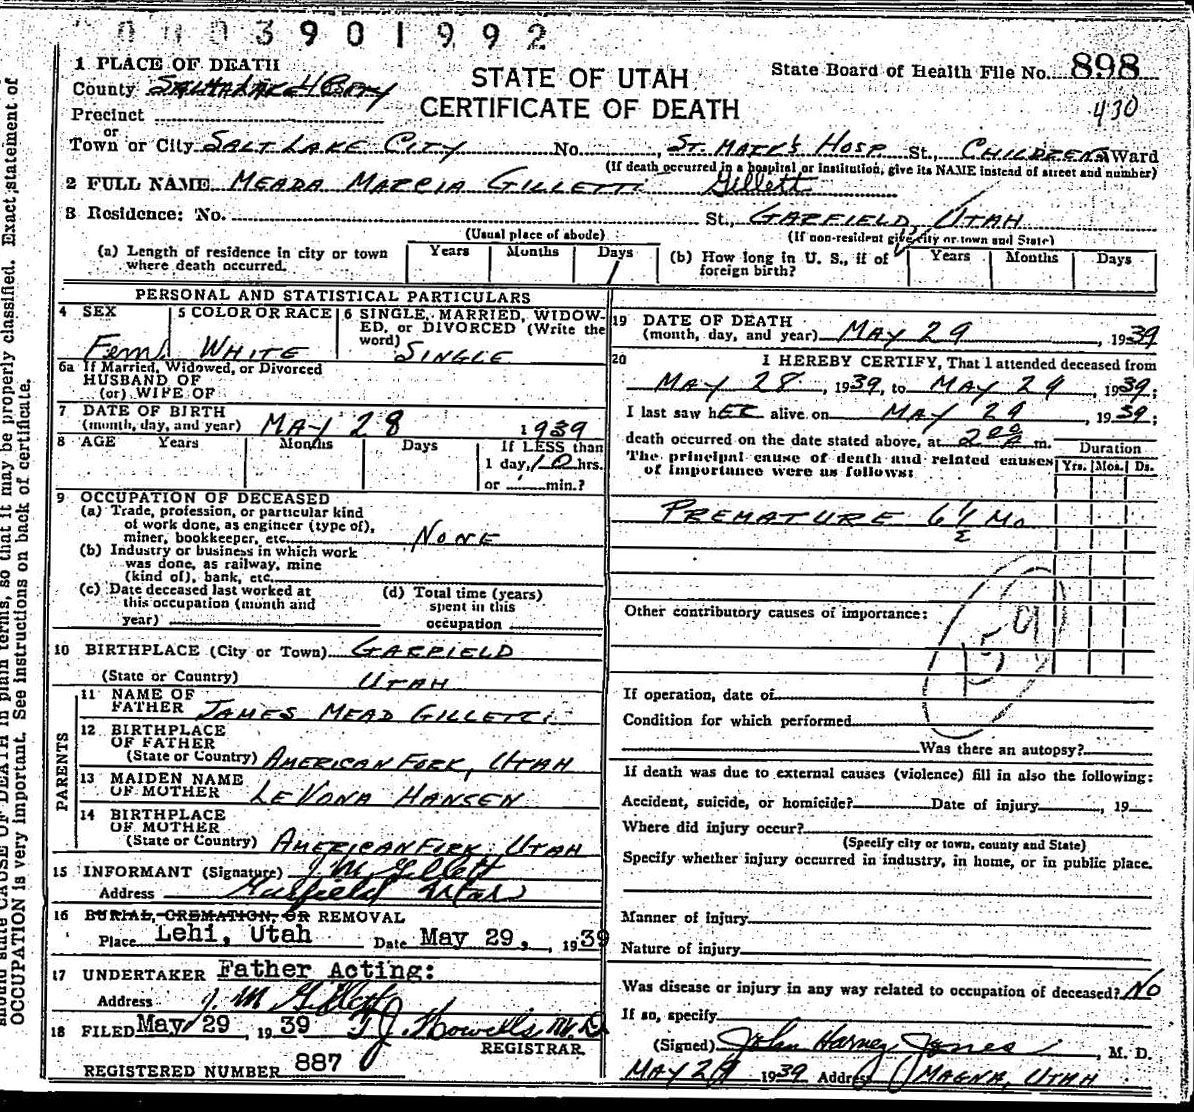 0003901992
1 PLACE OF DEATH
County
STATE OF UTAH
CERTIFICATE OF DEATH
State Board of Health File No. 898
430
Precinct
or
Town or City SALT LAKE CITY No. ST. MARK'S HOSP. St., CHILDRENS Ward
(If death occurred in a hospital or institution, give its NAME instead of street and number)
2 FULL NAME MEADA MARCIA GILLETTI Gillett
3 Residence: No. St., GARFIELD, UTAH
(Usual place of abode) (If non-resident give city or town and State)
(a) Length of residence in city or town where death occurred. Years Months Days
(b) How long in U. S., if of foreign birth? Years Months Days
PERSONAL AND STATISTICAL PARTICULARS
4 SEX Fem.
5 COLOR OR RACE WHITE
6 SINGLE, MARRIED, WIDOWED, or DIVORCED (Write the word) SINGLE
6a If Married, Widowed, or Divorced
HUSBAND OF
(or) WIFE OF
7 DATE OF BIRTH
(month, day, and year) MAY 28 1939
8 AGE Years Months Days If LESS than
1 day, 10 hrs.
or min.?
9 OCCUPATION OF DECEASED
(a) Trade, profession, or particular kind
of work done, as engineer (type of),
miner, bookkeeper, etc. NONE
(b) Industry or business in which work
was done, as railway, mine
(kind of), bank, etc.
(c) Date deceased last worked at
this occupation (month and
year)
(d) Total time (years)
spent in this
occupation
10 BIRTHPLACE (City or Town) GARFIELD
(State or Country) UTAH
PARENTS
11 NAME OF
FATHER JAMES MEAD GILLETTI
12 BIRTHPLACE
OF FATHER
(State or Country) AMERICAN FORK, UTAH
13 MAIDEN NAME
OF MOTHER LEVONA HANSEN
14 BIRTHPLACE
OF MOTHER
(State or Country) AMERICAN FORK, UTAH
15 INFORMANT (Signature) J. M. Gillett
Address Garfield Utah
16 BURIAL, CREMATION, OR REMOVAL
Place Lehi, Utah Date May 29, 1939
17 UNDERTAKER Father Acting:
Address J. M. Gillett
18 FILED May 29, 1939 T J Howells M.D
REGISTRAR.
REGISTERED NUMBER 887
19 DATE OF DEATH
(month, day, and year) MAY 29, 1939
20 I HEREBY CERTIFY, That I attended deceased from
MAY 28, 1939, to MAY 29, 1939;
I last saw hER alive on MAY 29, 1939;
death occurred on the date stated above, at 2 00 A m.
The principal cause of death and related causes
of importance were as follows:
Duration
Yrs. Mos. Ds.
PREMATURE 6 1/2 MO
Other contributory causes of importance:
159
If operation, date of
Condition for which performed
Was there an autopsy?
If death was due to external causes (violence) fill in also the following:
Accident, suicide, or homicide? Date of injury , 19
Where did injury occur?
(Specify city or town, county and State)
Specify whether injury occurred in industry, in home, or in public place.
Manner of injury
Nature of injury
Was disease or injury in any way related to occupation of deceased? NO
If so, specify
(Signed) John Harney Jones, M. D.
MAY 29 1939 Address MAGNA, UTAH
should state CAUSE OF DEATH in plain terms, so that it may be properly classified. Exact statement of
OCCUPATION is very important. See instructions on back of certificate.